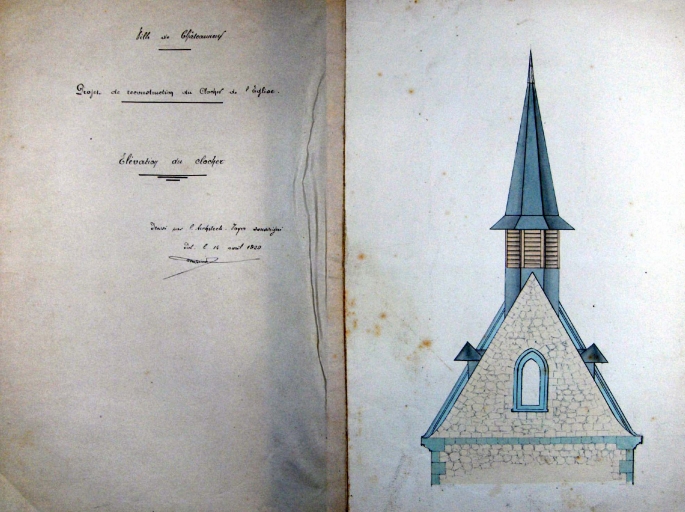 Ville de Châteauneuf
Projet de reconstruction du Clocher de l'Eglise.
Élévation du clocher
Dressé par l'Architecte soussigné
le 12 avril